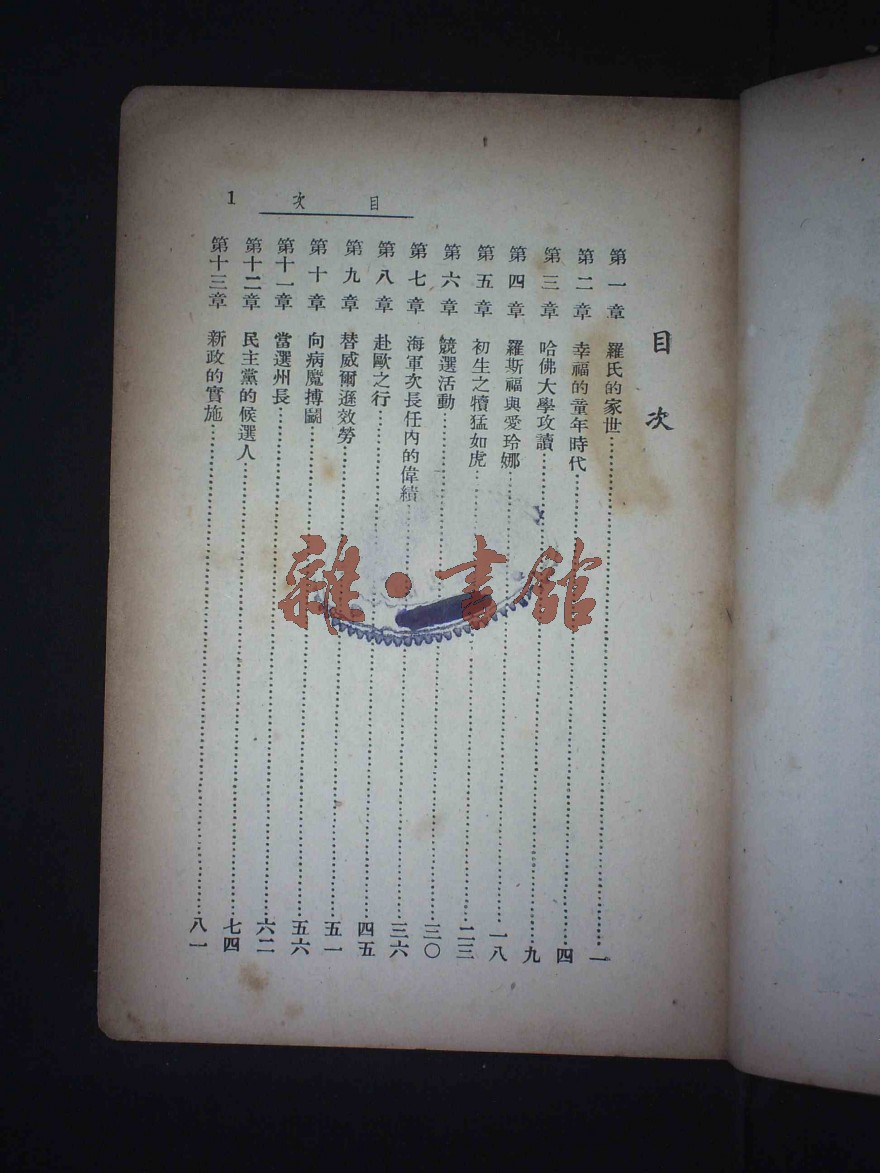 目次 1
目次
第一章 羅氏的家世…………一
第二章 幸福的童年時代…………四
第三章 哈佛大學攻讀…………九
第四章 羅斯福與愛玲娜…………一八
第五章 初生之犢猛如虎…………二三
第六章 競選活動…………三〇
第七章 海軍次長任內的偉績…………三六
第八章 赴歐之行…………四五
第九章 替威爾遜效勞…………五一
第十章 向病魔搏鬭…………五六
第十一章 當選州長…………六二
第十二章 民主黨的候選人…………七四
第十三章 新政的實施…………八一
雜·書館